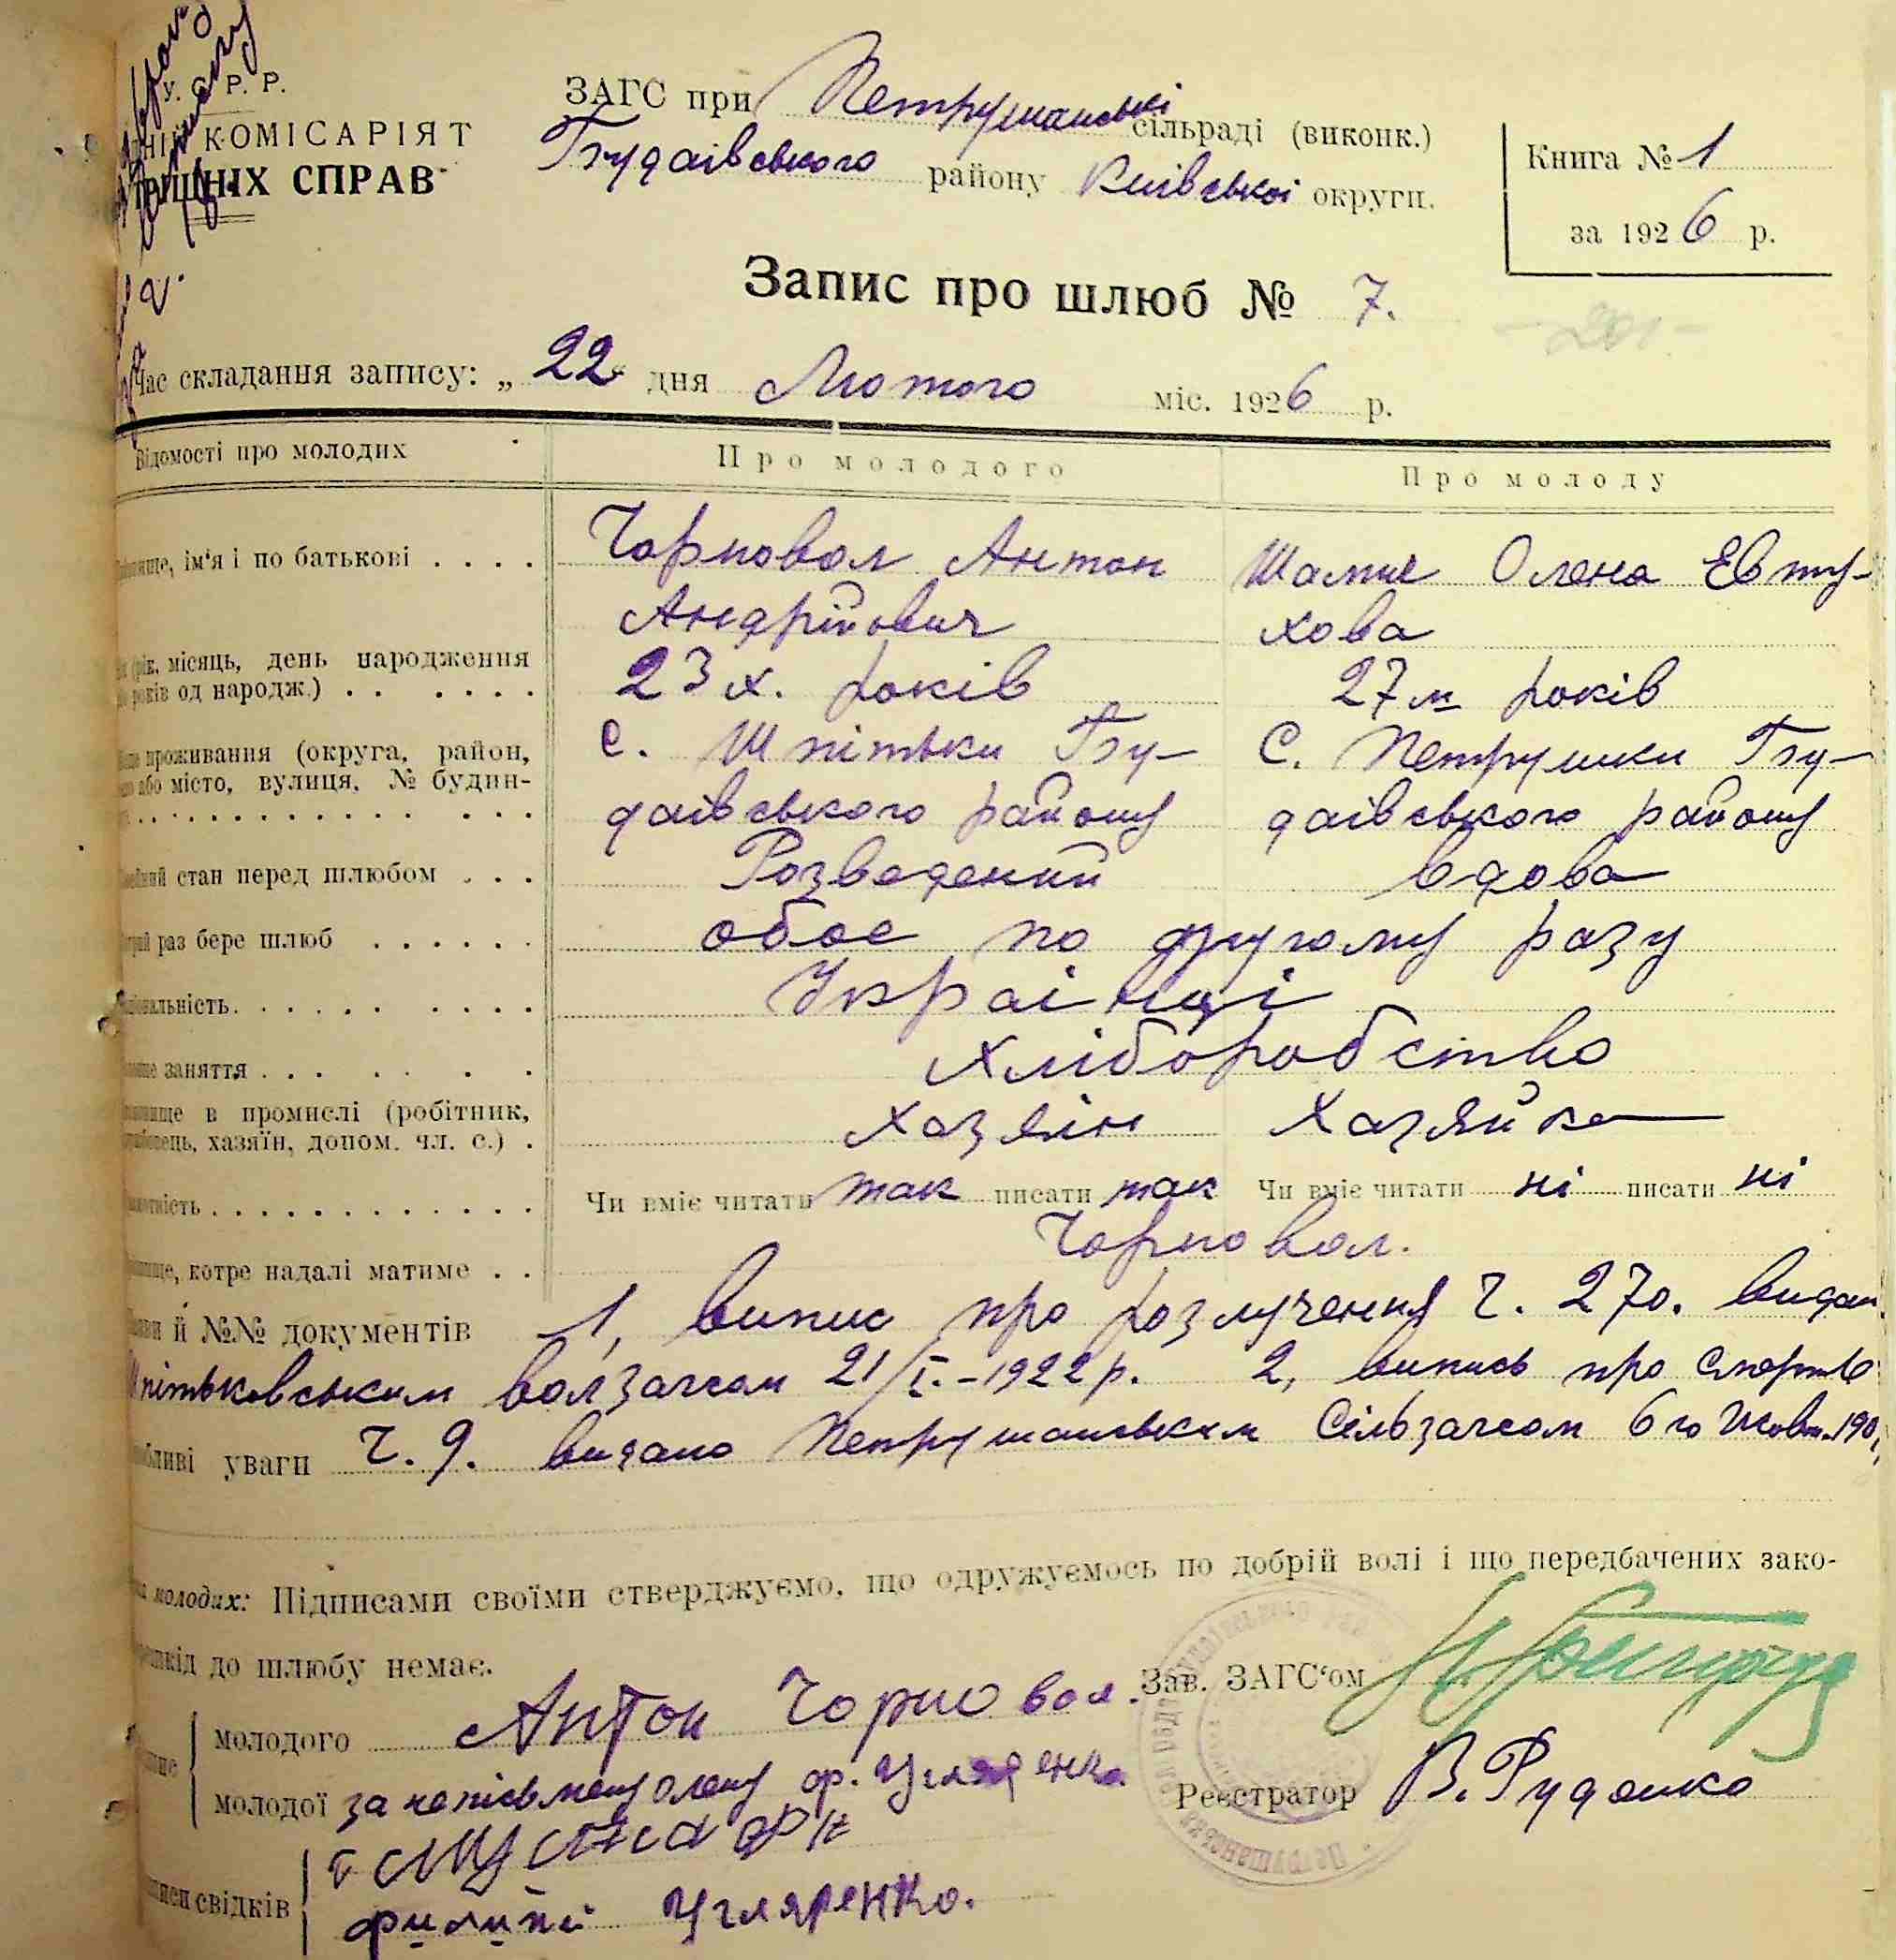 У. С. Р. Р.
КОМІСАРІЯТ
ТРІШНІХ СПРАВ
ЗАГС при Петрушанській сільраді (виконк.)
Будаівського району Київської округи.
Книга № 1
за 1926 р.
Запис про шлюб № 7.
Час складання запису: „ 22 “ дня Лютого міс. 1926 р.
Відомості про молодих
Про молодого
Про молоду
ім'я і по батькові . . . .
Чорновол Антон
Андрійович
Шамие Олена Евту-
хова
рік, місяць, день народження
років од народж.) . . . . . .
23 х. років
27 м років
проживання (округа, район,
або місто, вулиця, № будин-
с. Шпітьки Бу-
даівського району
С. Петрушки Бу-
даівського району
стан перед шлюбом . . .
Розведений
вдова
раз бере шлюб . . . . . .
обое по другому разу
Украінці
заняття . . . . . .
Хліборобство
в промислі (робітник,
хазяїн, допом. чл. с.) .
Хазяін
Хазяйка
Чи вміє читати так писати так
Чи вміє читати ні писати ні
котре надалі матиме . .
Чорновол.
й №№ документів 1, випис про розлучення Ч. 270. видан
Шпітьковським волзагсом 21/I.-1922р. 2, випись про смерть
уваги Ч. 9. видано Петрушанським Сільзагсом 6го Жовт. 190
молодих: Підписами своїми стверджуємо, що одружуємось по добрій волі і що передбачених зако-
до шлюбу немає.
Зав. ЗАГС'ом
молодого Антон Чорновол.
молодої за неписьмену олену ф. Угляренко
Реєстратор В. Руденко
свідків
филипп Угляренко.